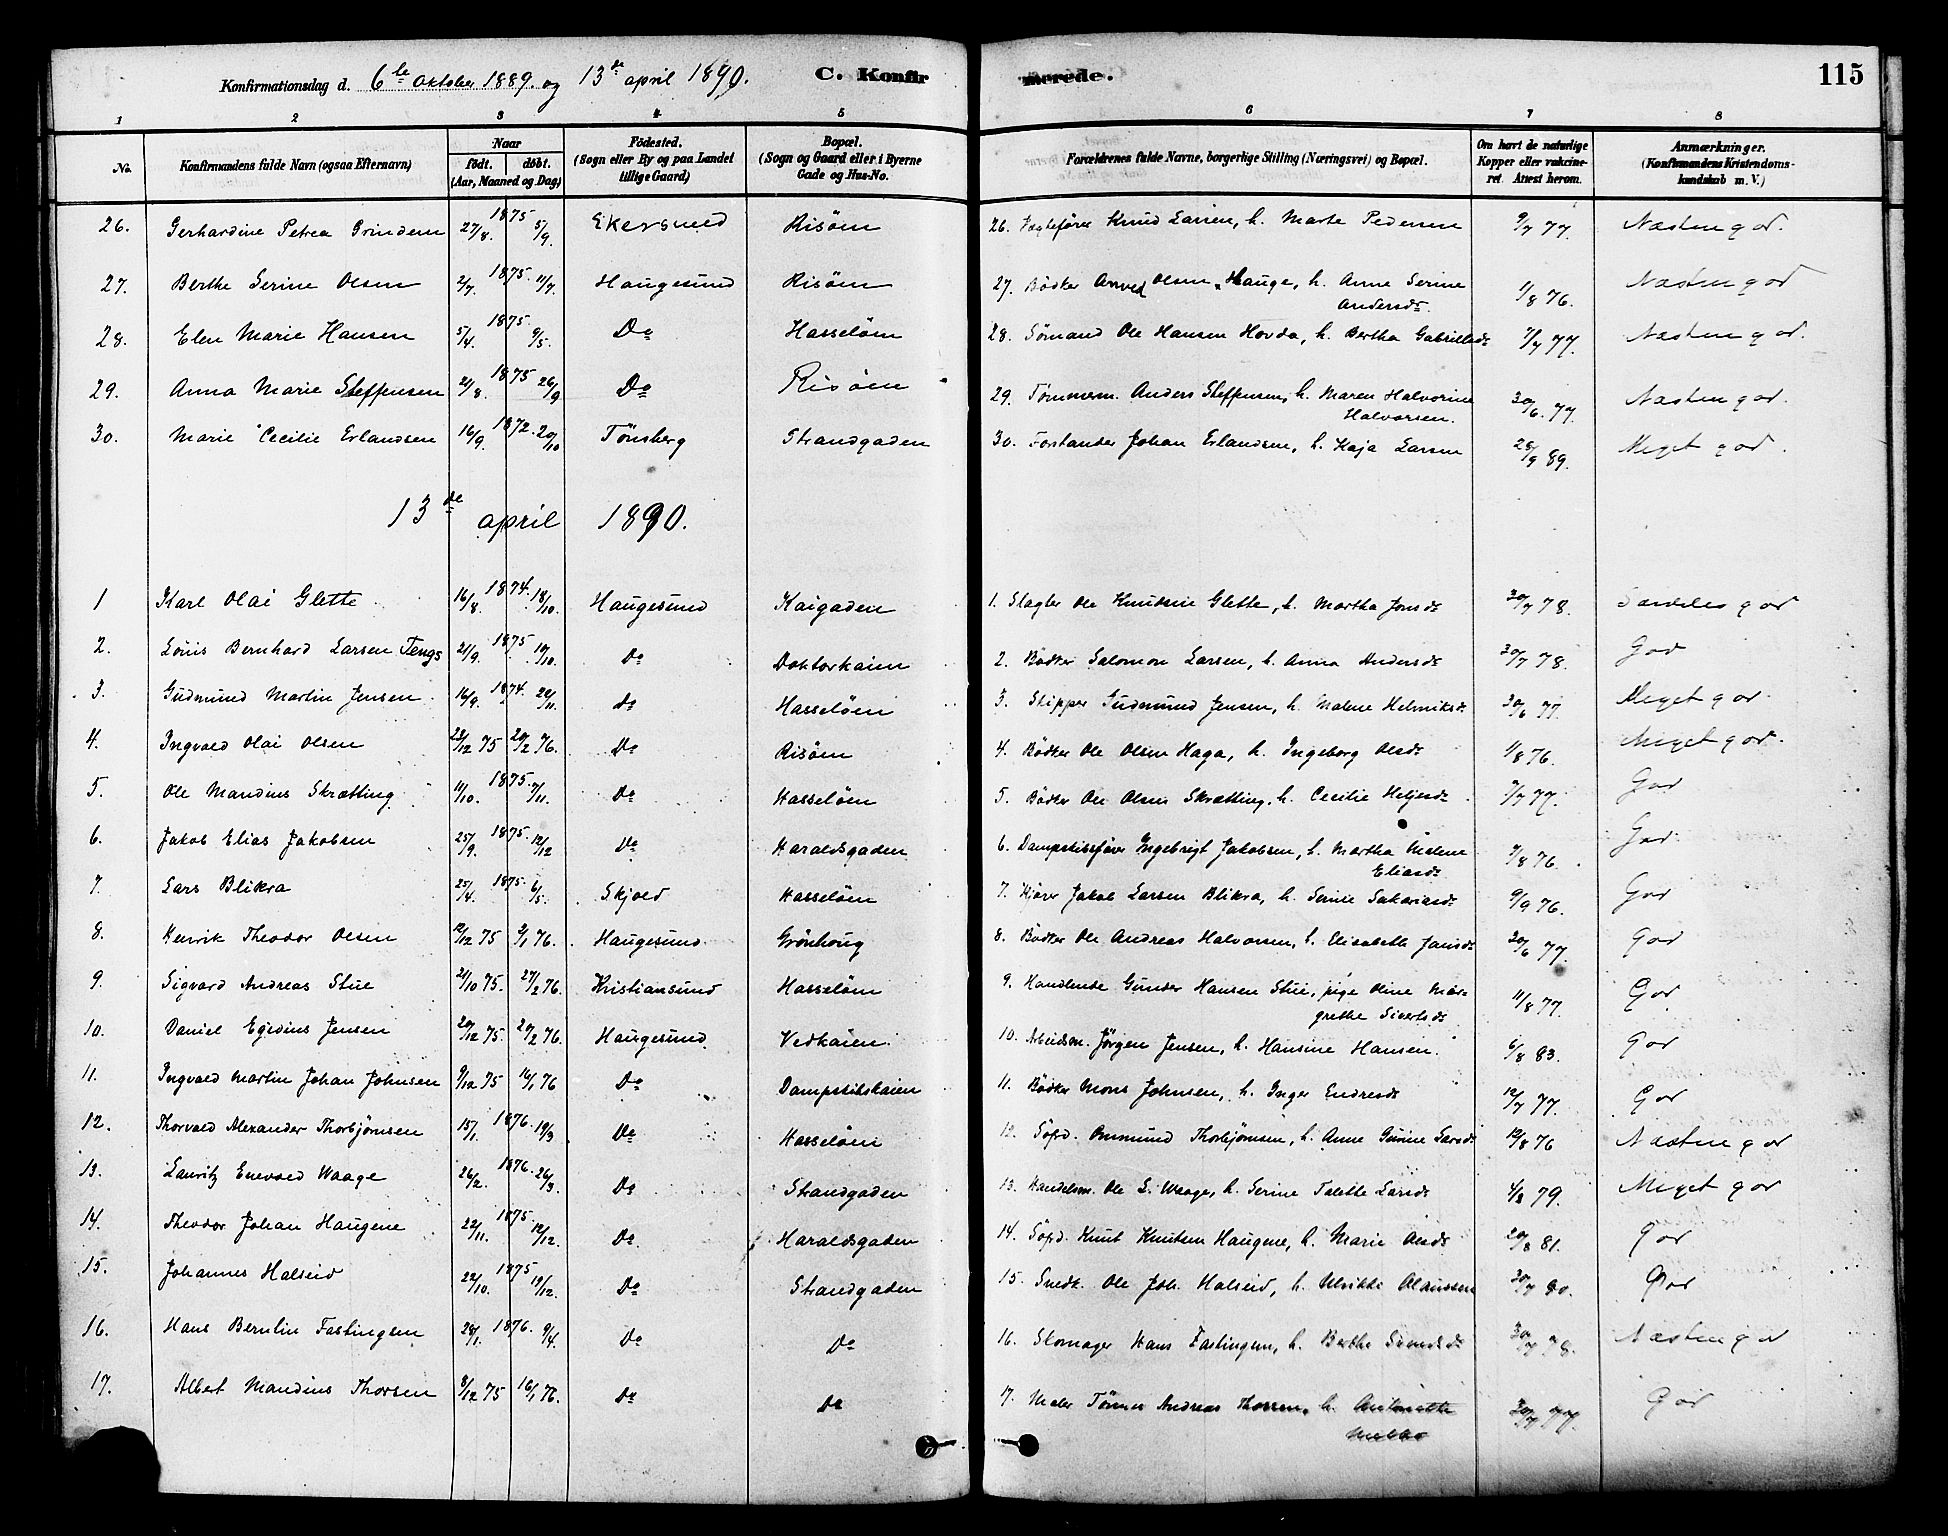 Konfirmationsdag d. 6te Oktober 1889. og 13de april 1890. C. Konfirmerede. 115
1 2 3 4 5 6 7 8
No. Konfirmandens fulde Navn (ogsaa Efternavn) Naar födt. döbt. (Aar, Maaned og Dag) Födested. (Sogn eller By og paa Landet tillige Gaard) Bopæl. (Sogn og Gaard eller i Byerne Gade og Hus-No. Forældrenes fulde Navne, borgerlige Stilling (Næringsvei) og Bopæl. Om havt de naturlige Kopper eller vakcineret. Attest herom. Anmærkninger. (Konfirmandens Kristendomskundskab m. V.)
26. Gerhardine Petrea Grindem 27/8. 1875 5/9. Ekersund Risöen 26. Knud Larsen, h. Marte Pedersen 9/7 77. Næsten god.
27. Berthe Serine Olsen 2/7. 1875. 11/7. Haugesund Risöen 27. Bödker Anved Olsen Hauge, h. Anne Serine Andersdr. 1/8 76. Næsten god
28. Elen Marie Hansen 5/4. 1875. 9/5. Do Hasselöen 28. Sömand Ole Hansen Hovda, h. Bertha Gabrielsdr 7/7 77. Næsten god.
29. Anna Marie Steffensen 21/8. 1875 26/9 Do Risöen 29. Tömmerm. Anders Steffensen, h. Maren Halvorine Halvorsen. 30/6. 77. Næsten god.
30. Marie Cecilie Erlandsen 16/9. 1872. 20/10 Tönsberg Strandgaden 30. Forstander Johan Erlandsen, h. Kaja Larsen 28/9 89. Meget god.
13de april 1890.
1 Karl Olai Glette 16/8. 1874. 18/10. Haugesund Kaigaden 1. Slagter Ole Knudsen Glette, h. Martha Jonsdr 30/7 78. Særdeles god
2. Louis Bernhard Larsen Tengs 21/9. 1875 10/10. Do Doktorkaien 2. Bödker Salomon Larsen, h. Anna Andersdr 30/7 78. God
3. Gudmund Martin Jensen 16/9. 1874. 22/11. Do Hasselöen 3. Skipper Gudmund Jensen, h. Malene Helmiksdr 30/6 77. Meget god.
4. Ingvald Olai Olsen 22/12 75 20/2 76. Do Risöen 4. Bödker Ole Olsen Haga, h. Ingeborg Olsdr 1/8 76. Meget god.
5. Ole Mandius Skrætting 11/10. 1875. 7/11. Do Hasselöen 5. Bödker Ole Olsen Skrætting, h. Cecilie Heljesdr 7/7 77. God
6. Jakob Elias Jakobsen 25/9. 1875. 12/12 Do Haraldsgaden 6. Dampskibsförer Ingebrigt Jakobsen, h. Martha Malene Eliasdr 7/8 76. God
7. Lars Blikra 25/4. 1875. 6/5. Skjold Hasselöen 7. Jakob Larsen Blikra, h. Serine Sakariasdr 9/9 76. God
8. Henrik Theodor Olsen 12/12 75 9/1 76. Haugesund Grönhoug 8. Bödker Ole Andreas Halvorsen, h. Elisabeth Jansdr 30/6 77. God
9. Sigvard Andreas Stue 21/10 75. 27/2 76. Kristiansund Hasselöen 9. Handlende Gunder Hansen Stue, pige Oline Margrethe Sivertsdr 11/8 77. God
10. Daniel Egidius Jensen 20/12 75. 20/2 76. Haugesund. Vedkaien. 10. Arbeidsm. Jörgen Jensen, h. Hansine Hansen. 6/8 83. God
11. Ingvald Martin Johan Johnsen 9/12 75 16/1 76 Do Dampskibskaien 11. Bödker Mons Johnsen, h. Inger Endresdr 12/7 77. God
12. Thorvald Alexander Thorbjörnsen 15/1. 1876. 19/3 Do Hasselöen 12. Ommund Thorbjörnsen, h. Anne Gurine Larsdr 12/8 76 Næsten god
13. Lauritz Enevald Waage 26/2. 1876. 26/3. Do Strandgaden 13. Handelsm. Ole L. Waage, h. Serine Talette Larsdr 4/8 79. Meget god
14. Theodor Johan Haugene 22/11. 1875 12/12. Do Haraldsgaden 14. Knut Knutsen Haugene, h. Marie Olsdr 20/8 81. God
15. Johannes Halseid 22/10. 1875 19/12. Do Strandgaden 15. Snedk. Ole Joh. Halseid, h. Ulrikke Olaussen 30/7 80. God
16. Hans Berntin Fastingsen 28/1. 1876. 9/4. Do Do 16. Skomager Hans Fastingsen, h. Berthe 30/7 78. Næsten god
17. Albert Mandius Thorsen 8/12 75 16/1 76. Do Do 17. Maler Tönnes Andreas Thorsen, h. Antonette 30/7 77. God